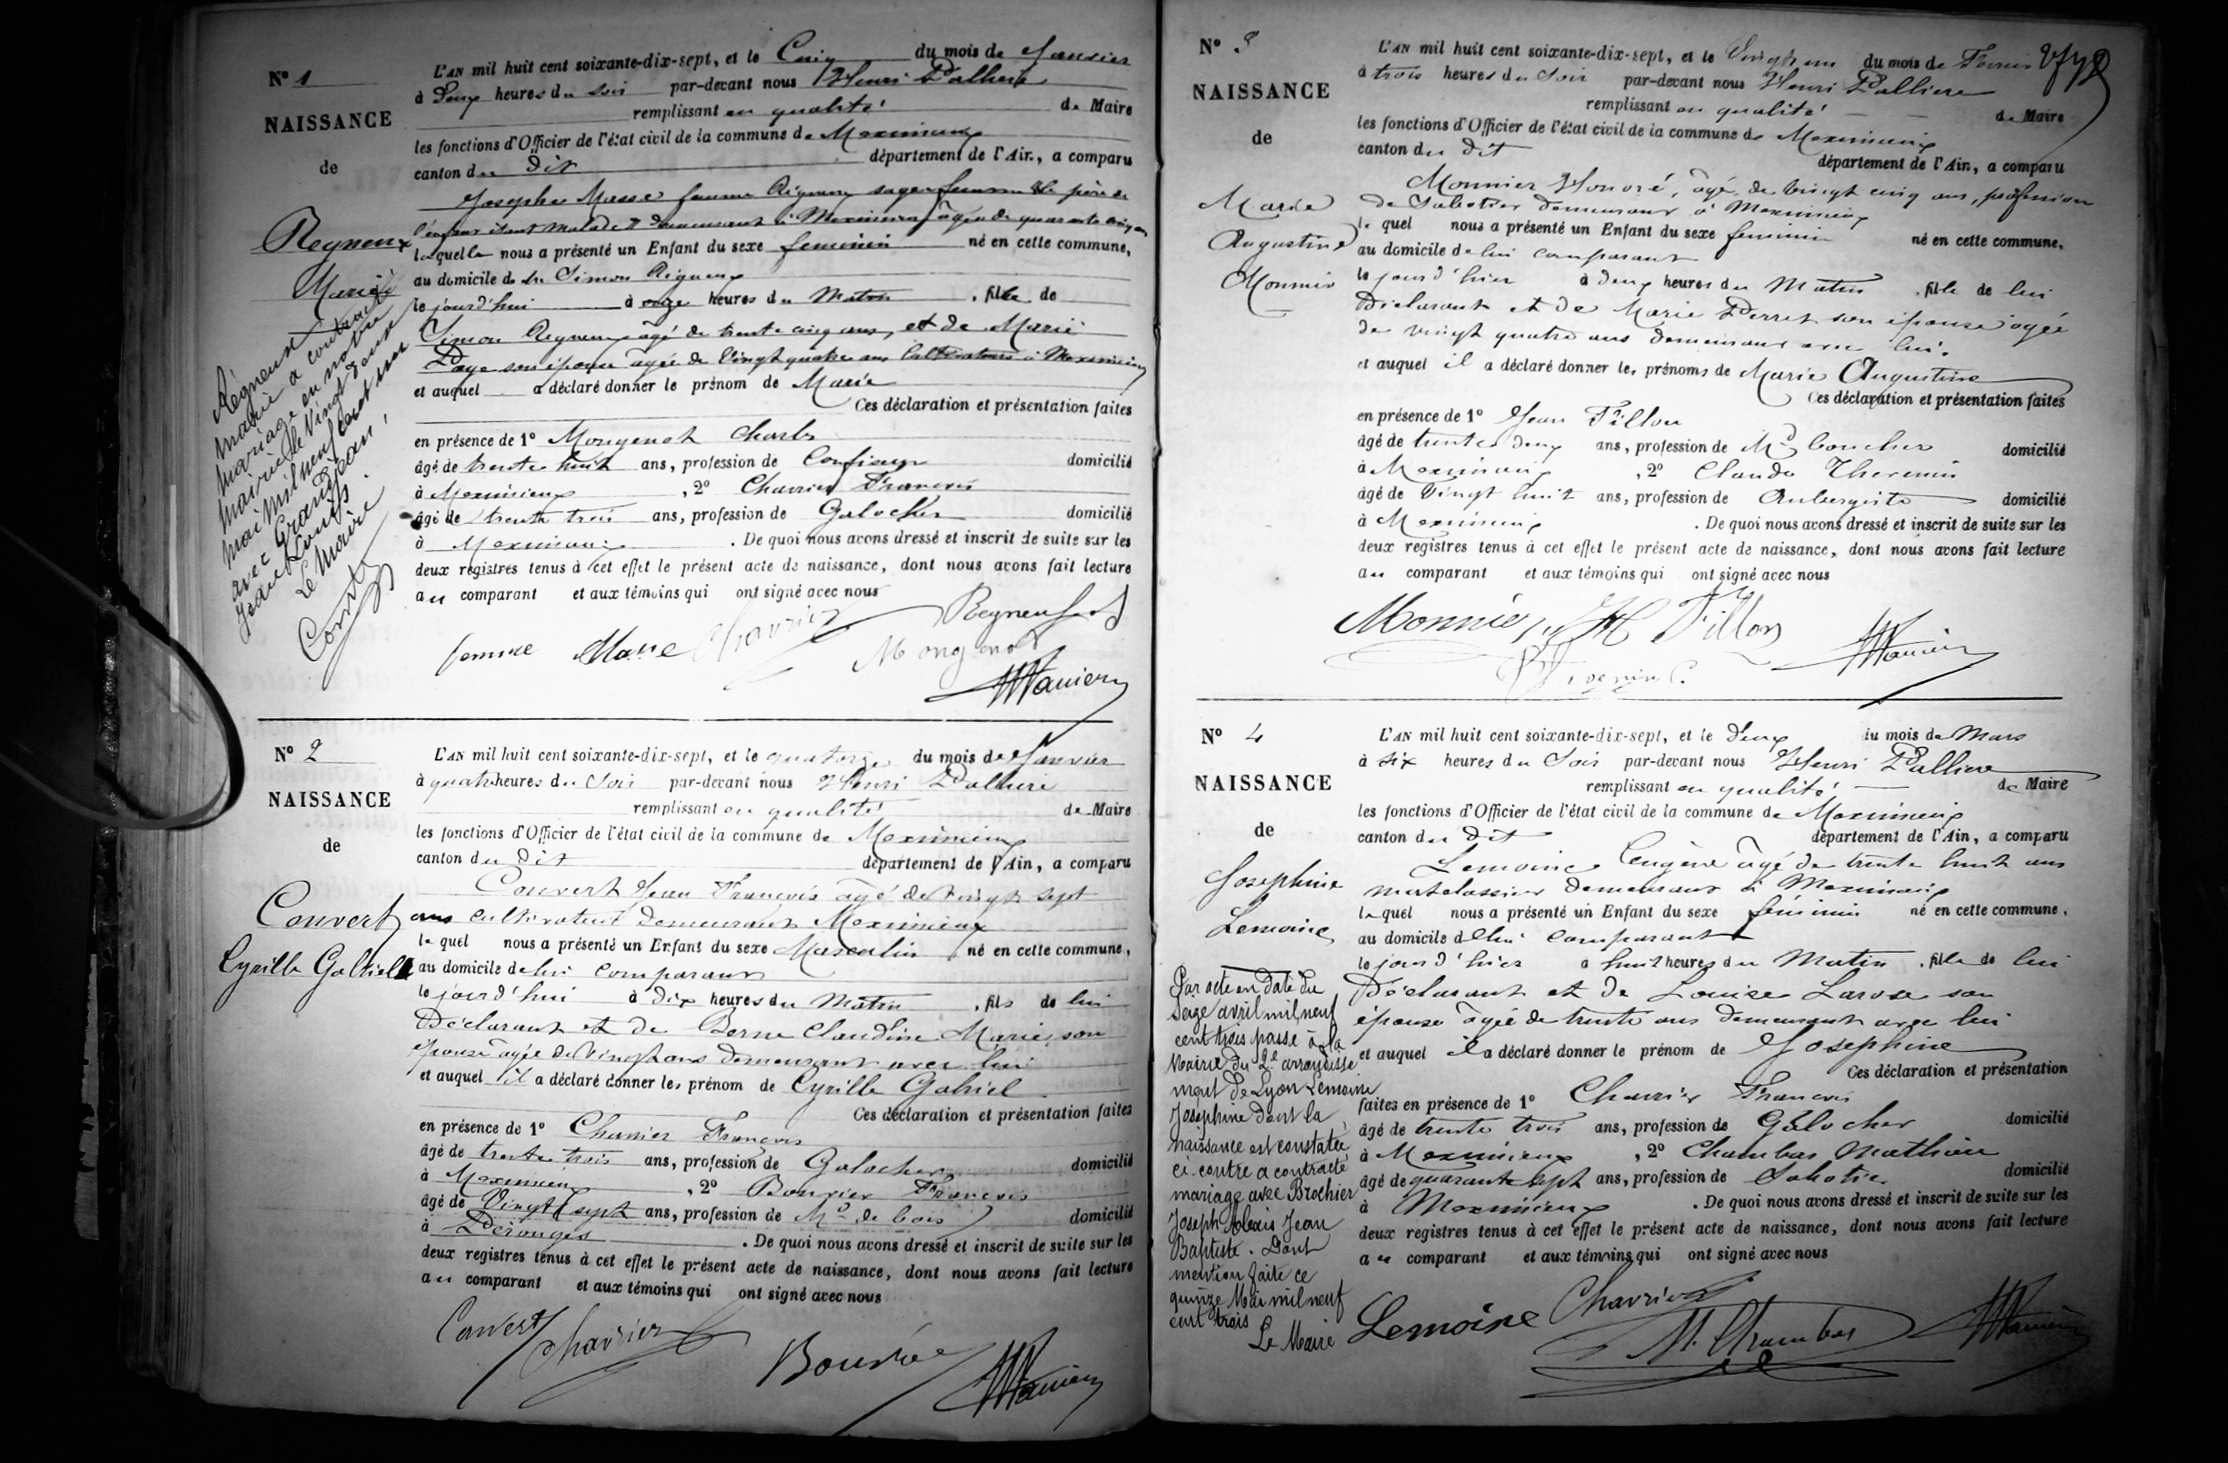 N° 1
NAISSANCE
de
Reyneux
Marie
Régneux
Marie a contracté
mariage en notre
mairie le vingt douze
mai mil neuf cent un
avec Grandjean,
Jean Louis.
Le Maire
L'AN mil huit cent soixante-dix-sept, et le Cinq du mois de Janvier
à Deux heures du Soir par-devant nous Henri Palliere
remplissant en qualité de Maire
les fonctions d'Officier de l'état civil de la commune de Meximieux
canton du dit département de l'Ain, a comparu
Josephe Masse femme Rigneux sage femme le père de
l'enfant étant malade demeurant à Meximieux âgée de quarante cinq ans
laquelle nous a présenté un Enfant du sexe feminin né en cette commune,
au domicile de Simon Rigneux
le jourd'hui à onze heures du Matin, fille de
Simon Rigneux agé de trente cinq ans, et de Marie
Page son épouse agée de Vingt quatre ans Cultivateurs à Meximieux
et auquel a déclaré donner le prénom de Marie
Ces déclaration et présentation faites
en présence de 1° Mongenot Charles
âgé de trente huit ans, profession de Confiseur domicilié
à Meximieux, 2° Chavrier Francois
âgé de trente trois ans, profession de Galocher domicilié
à Meximieux. De quoi nous avons dressé et inscrit de suite sur les
deux registres tenus à cet effet le présent acte de naissance, dont nous avons fait lecture
au comparant et aux témoins qui ont signé avec nous
femme Masse Chavrier Reyneux
Mongenot
N° 2
NAISSANCE
de
Couvert
Cyrille Gabriel
L'AN mil huit cent soixante-dix-sept, et le quatorze du mois de Janvier
à quatre heures du Soir par-devant nous Henri Palliere
remplissant en qualité de Maire
les fonctions d'Officier de l'état civil de la commune de Meximieux
canton du dit département de l'Ain, a comparu
Couvert Jean Francois agé de vingt sept
ans cultivateur demeurant Meximieux
lequel nous a présenté un Enfant du sexe Masculin né en cette commune,
au domicile de lui comparant
le jourd'hui à dix heures du Matin, fils de lui
Déclarant et de Berne Claudine Marie, son
épouse agée de Vingt ans demeurant avec lui
et auquel il a déclaré donner les prénom de Cyrille Gabriel
Ces déclaration et présentation faites
en présence de 1° Chavrier Francois
âgé de trente trois ans, profession de Galocher domicilié
à Meximieux, 2° Bouvier Francois
âgé de Vingt sept ans, profession de Md de bois domicilié
à Pérouges. De quoi nous avons dressé et inscrit de suite sur les
deux registres tenus à cet effet le présent acte de naissance, dont nous avons fait lecture
au comparant et aux témoins qui ont signé avec nous
Couvert Chavrier
Bouvier
N° 3
NAISSANCE
de
Marie
Augustine
Monnier
L'AN mil huit cent soixante-dix-sept, et le Vingt un du mois de Fevrier
à trois heures du Soir par-devant nous Henri Palliere
remplissant en qualité de Maire
les fonctions d'Officier de l'état civil de la commune de Meximieux
canton du dit département de l'Ain, a comparu
Monnier Honoré, agé de vingt cinq ans, profession
de Sabotier demeurant à Meximieux
lequel nous a présenté un Enfant du sexe feminin né en cette commune,
au domicile de lui comparant
le jour d'hier à deux heures du Matin, fille de lui
Déclarant et de Marie Perret son épouse agée
de vingt quatre ans demeurant avec lui.
et auquel il a déclaré donner les prénoms de Marie Augustine
Ces déclaration et présentation faites
en présence de 1° Jean Fillon
âgé de trente deux ans, profession de Md boucher domicilié
à Meximieux, 2° Claude Thevenin
âgé de Vingt huit ans, profession de Aubergiste domicilié
à Meximieux. De quoi nous avons dressé et inscrit de suite sur les
deux registres tenus à cet effet le présent acte de naissance, dont nous avons fait lecture
au comparant et aux témoins qui ont signé avec nous
Monnier Fillon
N° 4
NAISSANCE
de
Josephine
Lemoine
Par acte en date du
seize avril mil neuf
cent trois passé à la
Mairie du 2e arrondisse
ment de Lyon Lemoine
Joséphine dont la
naissance est constatée
ci-contre a contracté
mariage avec Brochier
Joseph Alexis Jean
Baptiste. Dont
mention faite ce
quinze Mai mil neuf
cent trois
Le Maire
L'AN mil huit cent soixante-dix-sept, et le Deux du mois de Mars
à six heures du Soir par-devant nous Henri Palliere
remplissant en qualité de Maire
les fonctions d'Officier de l'état civil de la commune de Meximieux
canton du dit département de l'Ain, a comparu
Lemoine Eugène agé de trente huit ans
matelassier demeurant à Meximieux
lequel nous a présenté un Enfant du sexe féminin né en cette commune,
au domicile de lui comparant
le jour d'hier à huit heures du Matin, fille de lui
Déclarant et de Louise Larose son
épouse agée de trente ans demeurant avec lui
et auquel il a déclaré donner le prénom de Josephine
Ces déclaration et présentation
faites en présence de 1° Chavrier Francois
âgé de trente trois ans, profession de Galocher domicilié
à Meximieux, 2° Chambas Mathieu
âgé de quarante sept ans, profession de Sabotier domicilié
à Meximieux. De quoi nous avons dressé et inscrit de suite sur les
deux registres tenus à cet effet le présent acte de naissance, dont nous avons fait lecture
au comparant et aux témoins qui ont signé avec nous
Lemoine Chavrier
M. Chambas